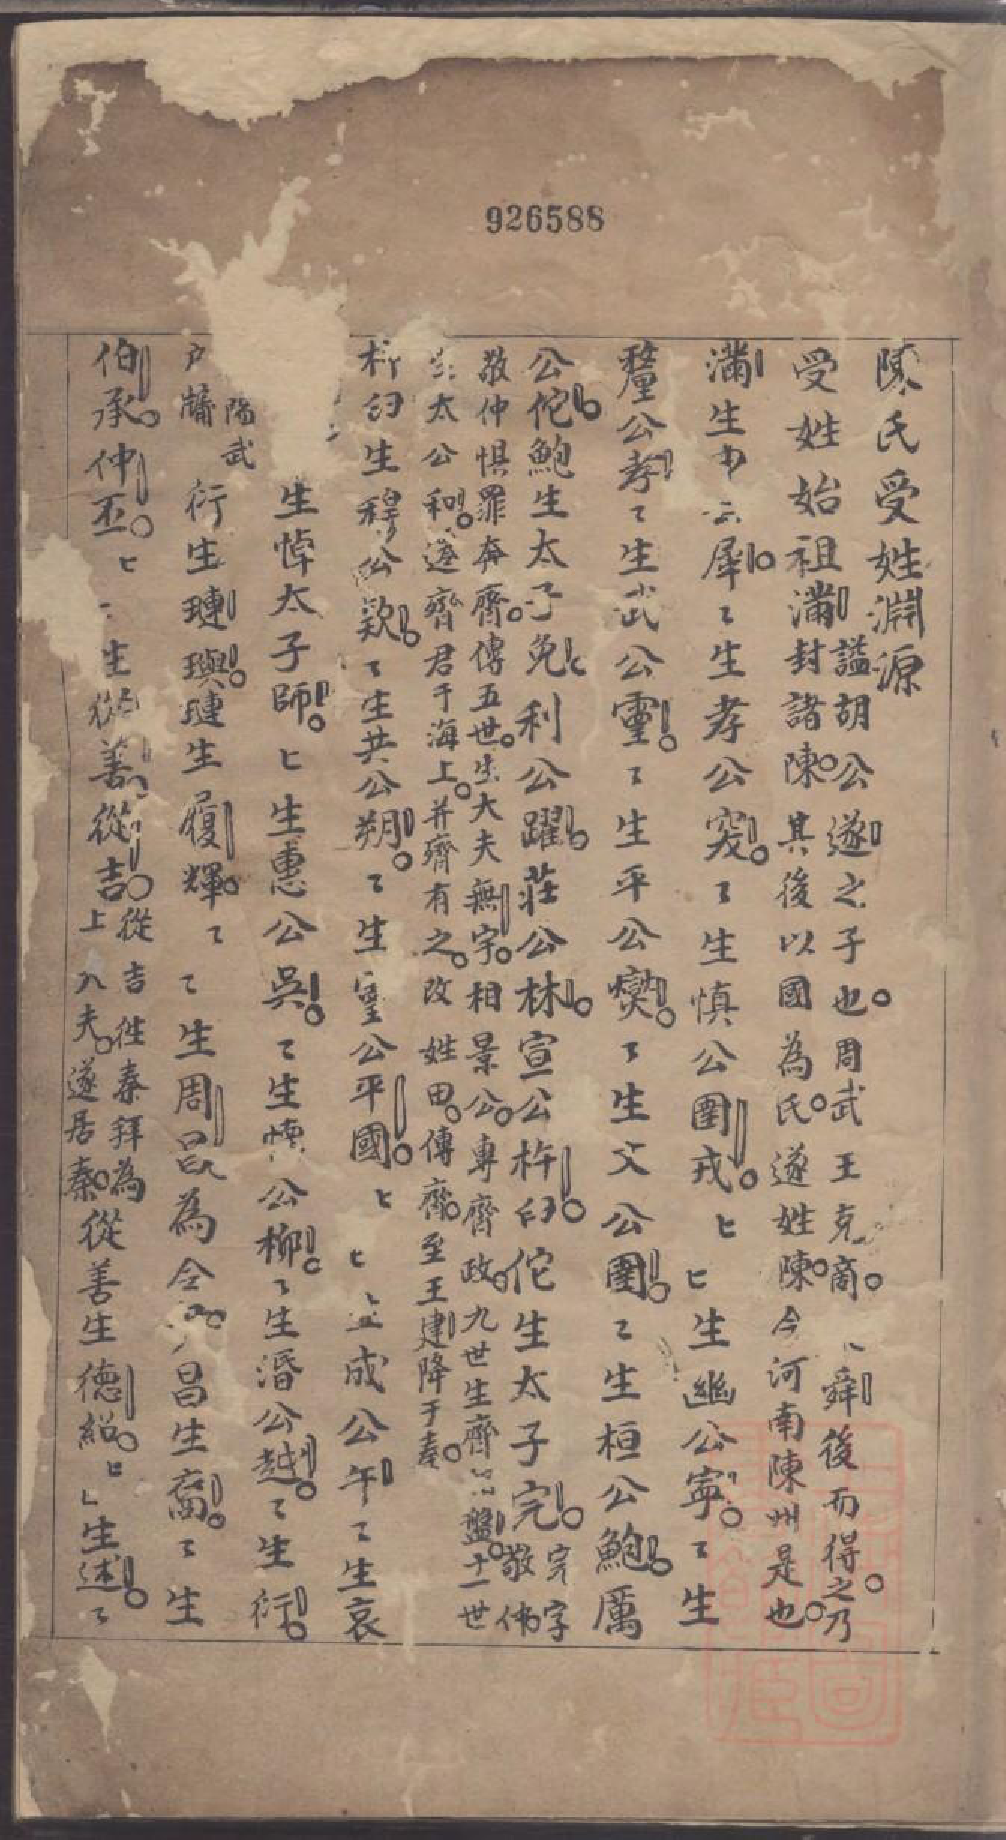 926588
陳氏受姓淵源
受姓始祖滿謚胡公遂之子也周武王克商 舜後而得之乃
封諸陳其後以國為氏遂姓陳今河南陳州是也
滿生申公犀〻生孝公突〻生慎公圉戎〻〻生幽公寧〻生
釐公孝〻生武公靈〻生平公燮〻生文公圉〻生桓公鮑厲
公佗鮑生太子免利公躍莊公林宣公杵臼佗生太子完完字敬仲
敬仲惧罪奔齊傳五世生大夫無宇相景公專齊政九世生齊 盤十一世
生太公和遂齊君于海上并齊有之改姓田傳齊至王建降于秦
杵臼生穆公款〻生共公朔〻生靈公平國〻〻 成公午〻生哀
生悼太子師〻生惠公吳〻生懷公柳〻生湣公越〻生衍
陽武
戶牖 衍生璉璵璉生履輝〻〻生周昌為令 昌生 〻生
伯承仲丕〻 生從善從吉從吉徃秦拜為上 夫遂居秦從善生德紹〻〻生述〻